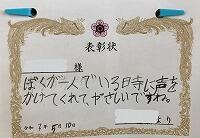 表彰状
様
ぼくが一人でいる日寺に声を
かけてくれてやさしいですね。
5月10日
より